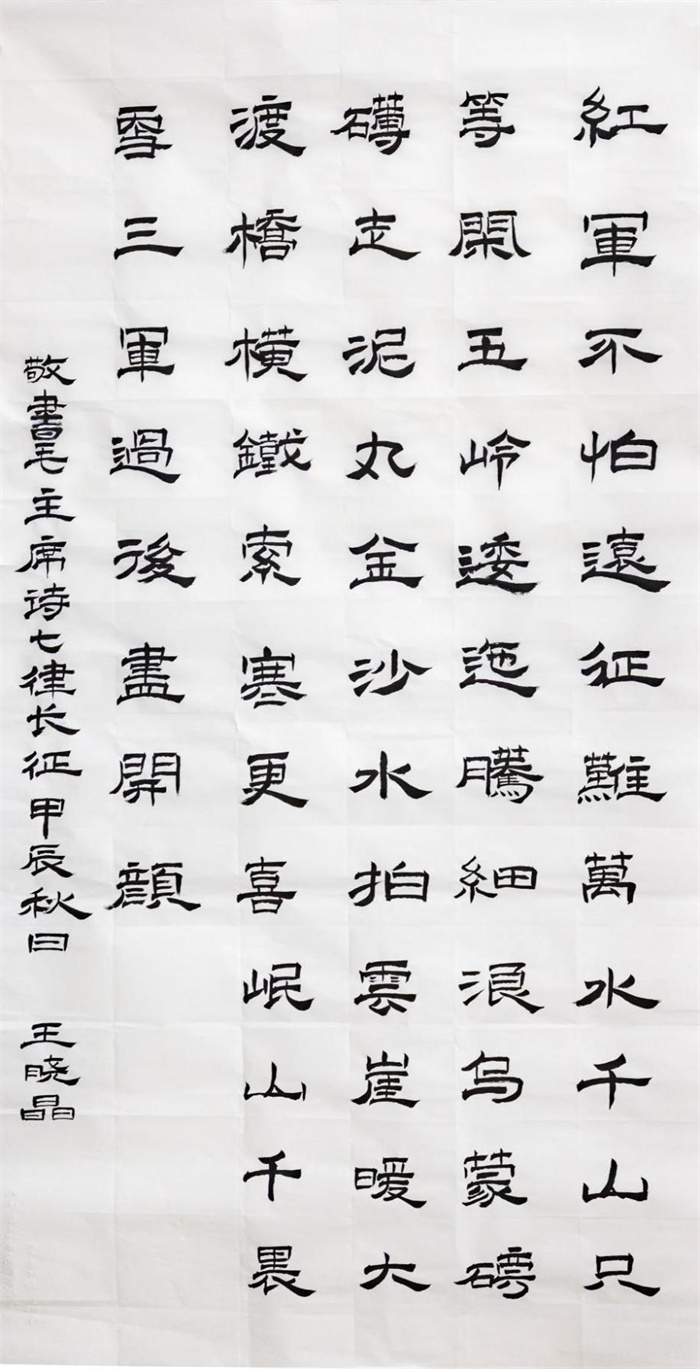 紅軍不怕遠征難萬水千山只
等閑五岭逶迤騰細浪乌蒙磅
礴走泥丸金沙水拍雲崖暖大
渡橋橫鐵索寒更喜岷山千裏
雪三軍過後盡開顔
敬書毛主席诗七律长征甲辰秋日 王晓晶